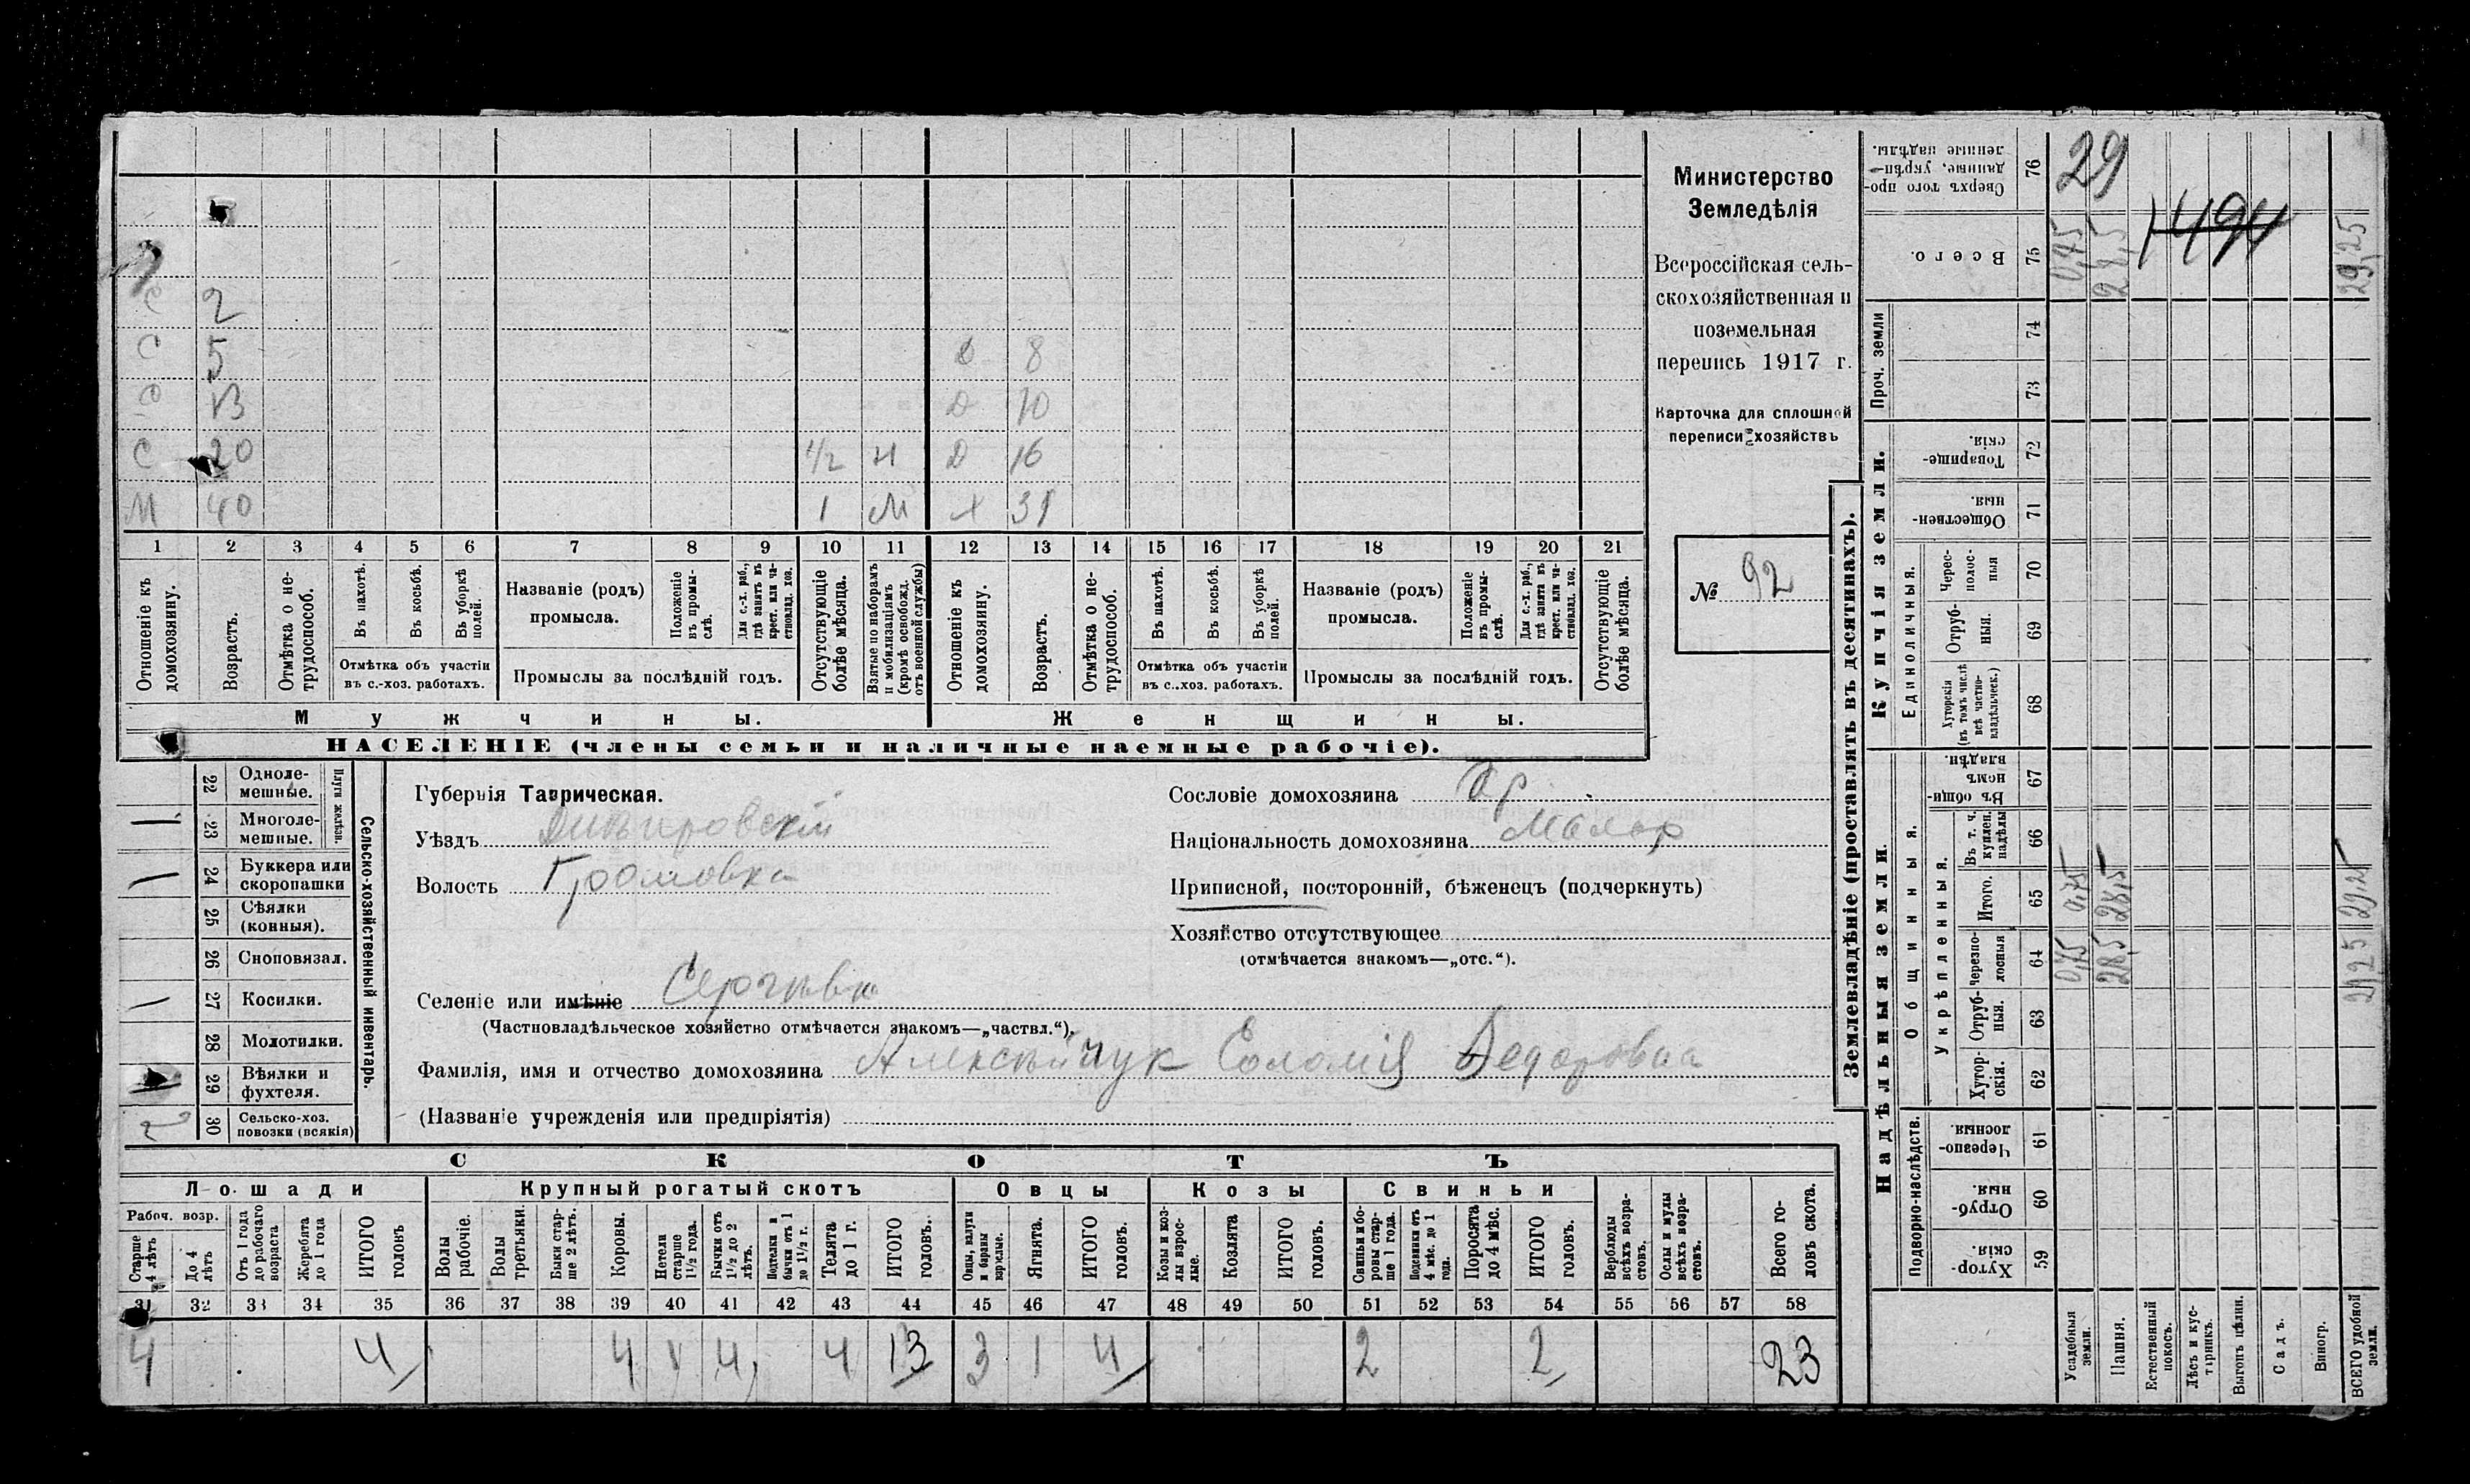 Министерство
Земледѣлія
Всероссійская сель-
скохозяйственная и
поземельная
перепись 1917 г.
Карточка для сплошной
переписи хозяйствъ
№ 92
С 2
С 5 Д 8
С 13 Д 10
С 20 Д 16
М 40 1 М Х 31
1 2 3 4 5 6 7 8 9 10 11 12 13 14 15 16 17 18 19 20 21
Отношеніе къ домохозяину.
Возрастъ.
Отмѣтка о не-трудоспособ.
Въ пахотѣ.
Въ косьбѣ.
Въ уборкѣ полей.
Отмѣтка объ участіи
въ с.-хоз. работахъ.
Названіе (родъ)
промысла.
Положеніе въ промы-слѣ.
Для с.-х. раб., гдѣ занятъ въ крест. или ча-стновлад. хоз.
Промыслы за послѣдній годъ.
Отсутствующіе болѣе мѣсяца.
Взятые по наборамъ и мобилизаціямъ (кромѣ освобожд. отъ военной службы)
Отношеніе къ домохозяину.
Возрастъ.
Отмѣтка о не-трудоспособ.
Въ пахотѣ.
Въ косьбѣ.
Въ уборкѣ полей.
Отмѣтка объ участіи
въ с.-хоз. работахъ.
Названіе (родъ)
промысла.
Положеніе въ промы-слѣ.
Для с.-х. раб., гдѣ занята въ крест. или ча-стновлад. хоз.
Промыслы за послѣдній годъ.
Отсутствующіе болѣе мѣсяца.
Мужчины.
Женщины.
НАСЕЛЕНІЕ (члены семьи и наличные наемные рабочіе).
Сельско-хозяйственный инвентарь.
Плуги желѣзн.
22 Одноле-мешные.
23 Многоле-мешные.
24 Буккера или скоропашки
25 Сѣялки (конныя).
26 Сноповязал.
27 Косилки.
28 Молотилки.
29 Вѣялки и фухтеля.
30 Сельско-хоз. повозки (всякія)
2
Губернія Таврическая.
Уѣздъ Днѣпровскій
Волость Громовка
Селеніе или имѣніе Сергѣвка
(Частновладѣльческое хозяйство отмѣчается знакомъ—„частвл.“).
Фамилія, имя и отчество домохозяина Алексѣйчук Соломія Федоровна
(Названіе учрежденія или предпріятія)
Сословіе домохозяина Кр
Національность домохозяина Малор
Приписной, посторонній, бѣженецъ (подчеркнуть)
Хозяйство отсутствующее
(отмѣчается знакомъ—„отс.“).
СКОТЪ
Лошади
Крупный рогатый скотъ
Овцы
Козы
Свиньи
Рабоч. возр.
Старше 4 лѣтъ
До 4 лѣтъ
Отъ 1 года до рабочаго возраста
Жеребята до 1 года
ИТОГО головъ
Волы рабочіе.
Волы третьяки.
Быки стар-ше 2 лѣтъ.
Коровы.
Нетели старше 1½ года.
Бычки отъ 1½ до 2 лѣтъ.
Подтелки и бычки отъ 1 до 1½ г.
Телята до 1 г.
ИТОГО головъ.
Овцы, валухи и бараны взрослые.
Ягнята.
ИТОГО головъ.
Козы и коз-лы взрос-лые.
Козлята
ИТОГО головъ.
Свиньи и бо-ровы стар-ше 1 года.
Подсвинки отъ 4 мѣс. до 1 года.
Поросята до 4 мѣс.
ИТОГО головъ.
Верблюды всѣхъ возра-стовъ.
Ослы и мулы всѣхъ возра-стовъ.
Всего го-ловъ скота.
31 32 33 34 35 36 37 38 39 40 41 42 43 44 45 46 47 48 49 50 51 52 53 54 55 56 57 58
4 4 4 1 4 4 13 3 1 4 2 2 23
Землевладѣніе (проставлять въ десятинахъ).
Надѣльныя земли.
Купчія земли.
Проч. земли
Подворно-наслѣдств.
Общинныя.
Укрѣпленныя.
Единоличныя.
Хутор-скія. 59
Отруб-ныя. 60
Черезпо-лосныя. 61
Хутор-скія. 62
Отруб-ныя. 63
Черезпо-лосныя 64 0,75 28,5 29,25
Итого. 65 0,75 28,5 29,25
Въ т. ч. куплен. надѣлы 66
Въ общи-номъ владѣн. 67
Хуторскія (въ томъ числѣ всѣ частно-владѣльческ.) 68
Отруб-ныя. 69
Черес-полос-ныя 70
Обществен-ныя. 71
Товарище-скія. 72
73
74
Всего. 75 0,75 28,5 29,25
Сверхъ того про-данные, укрѣп-ленные надѣлы. 76
29
1494
Усадебныя земли.
Пашня.
Естественный покосъ.
Лѣсъ и кус-тарникъ.
Выгонъ цѣлин.
Садъ.
Виногр.
ВСЕГО удобной земли.